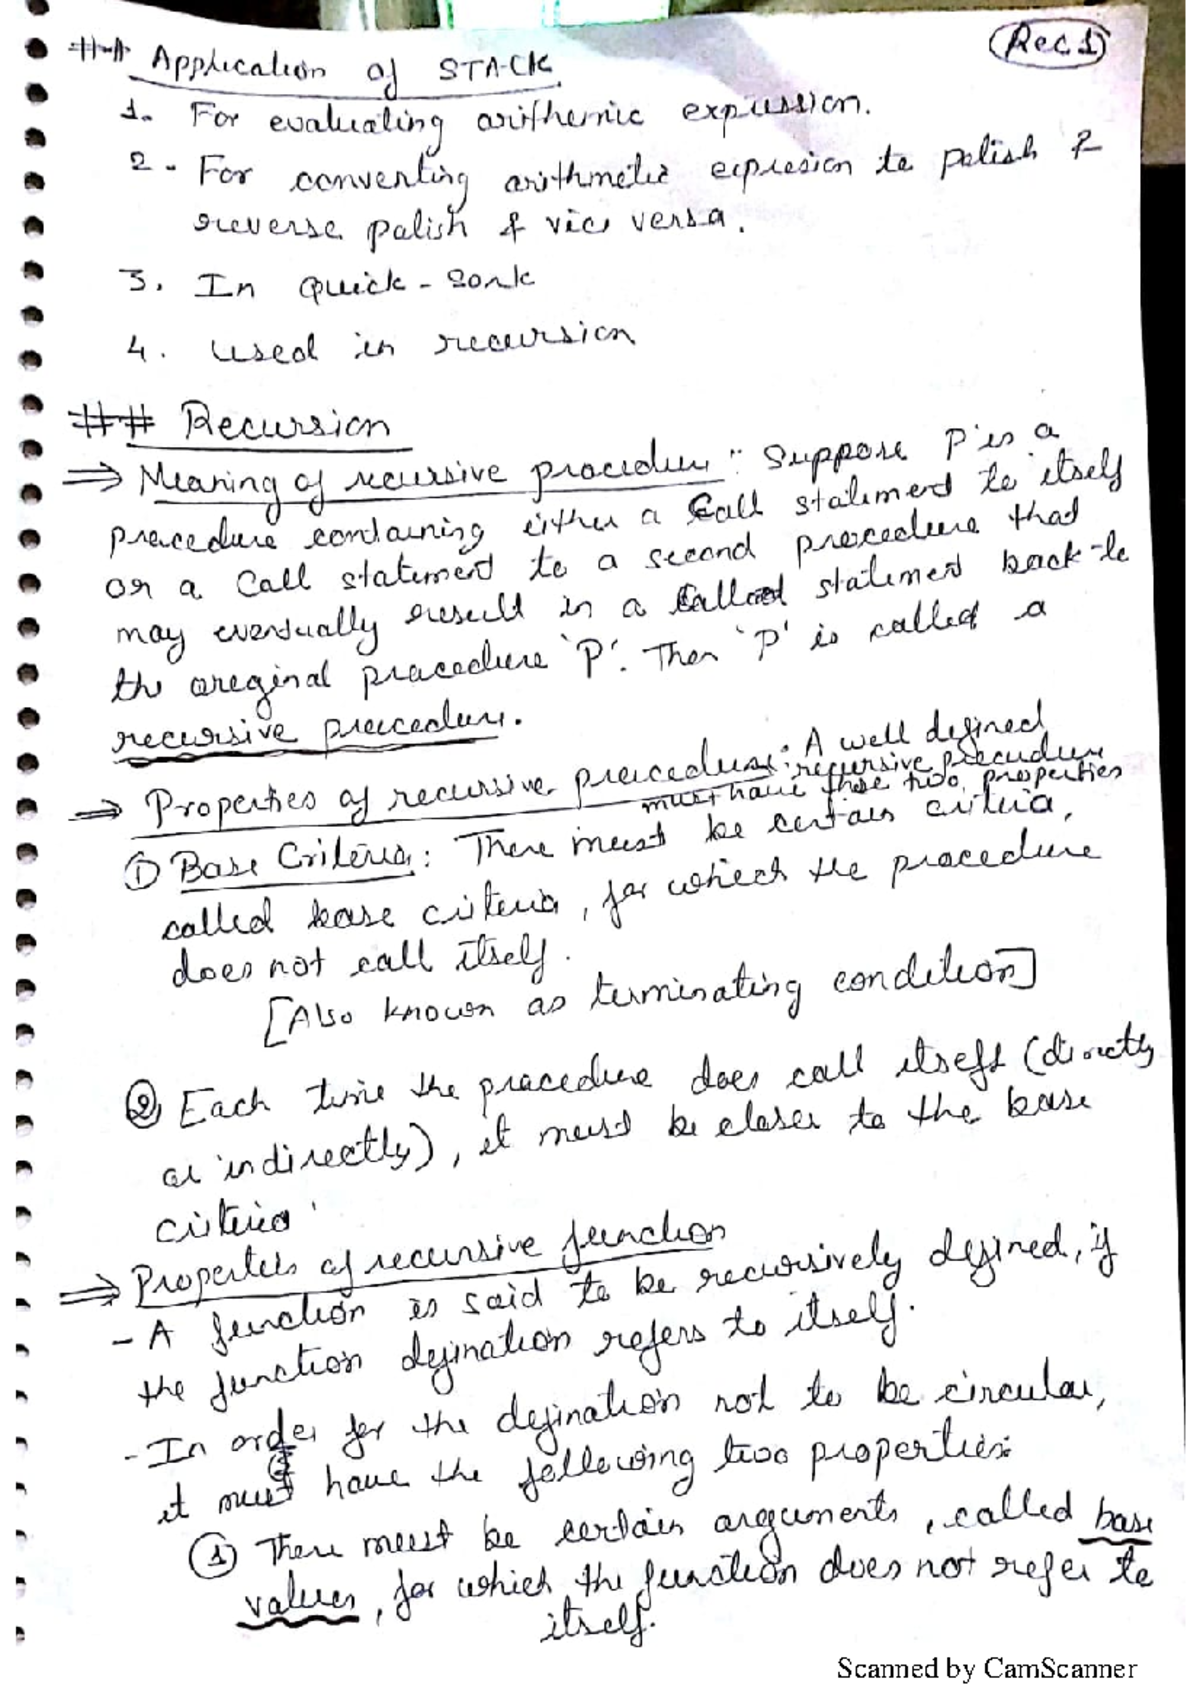 (Rec 1)
## Application of STACK
1. For evaluating arithemic expression.
2. For converting arithmetic expresion to polish &
reverse polish & vice versa.
3. In Quick-Sork
4. Used in recursion
## Recursion
⇒ Meaning of recursive procedure: Suppose 'P' is a
procedure containing either a Call statement to itself
or a Call statement to a second procedure that
may eventually result in a Called statement back to
the original procedure 'P'. Then 'P' is called a
recursive procedure.
⇒ Properties of recursive procedures: A well defined
recursive procedure
must have these two properties
① Base Criteria: There must be certain criteria,
called base criteria, for which the procedure
does not call itself.
[Also known as terminating condition]
② Each time the procedure does call itself (directly
or indirectly), it must be closer to the base
criteria.
⇒ Properties of recursive function
- A function is said to be recursively defined, if
the function defination refers to itself.
- In order for the defination not to be circular,
it must have the following two properties:
① There must be certain arguments, called base
values, for which the function does not refer to
itself.
Scanned by CamScanner